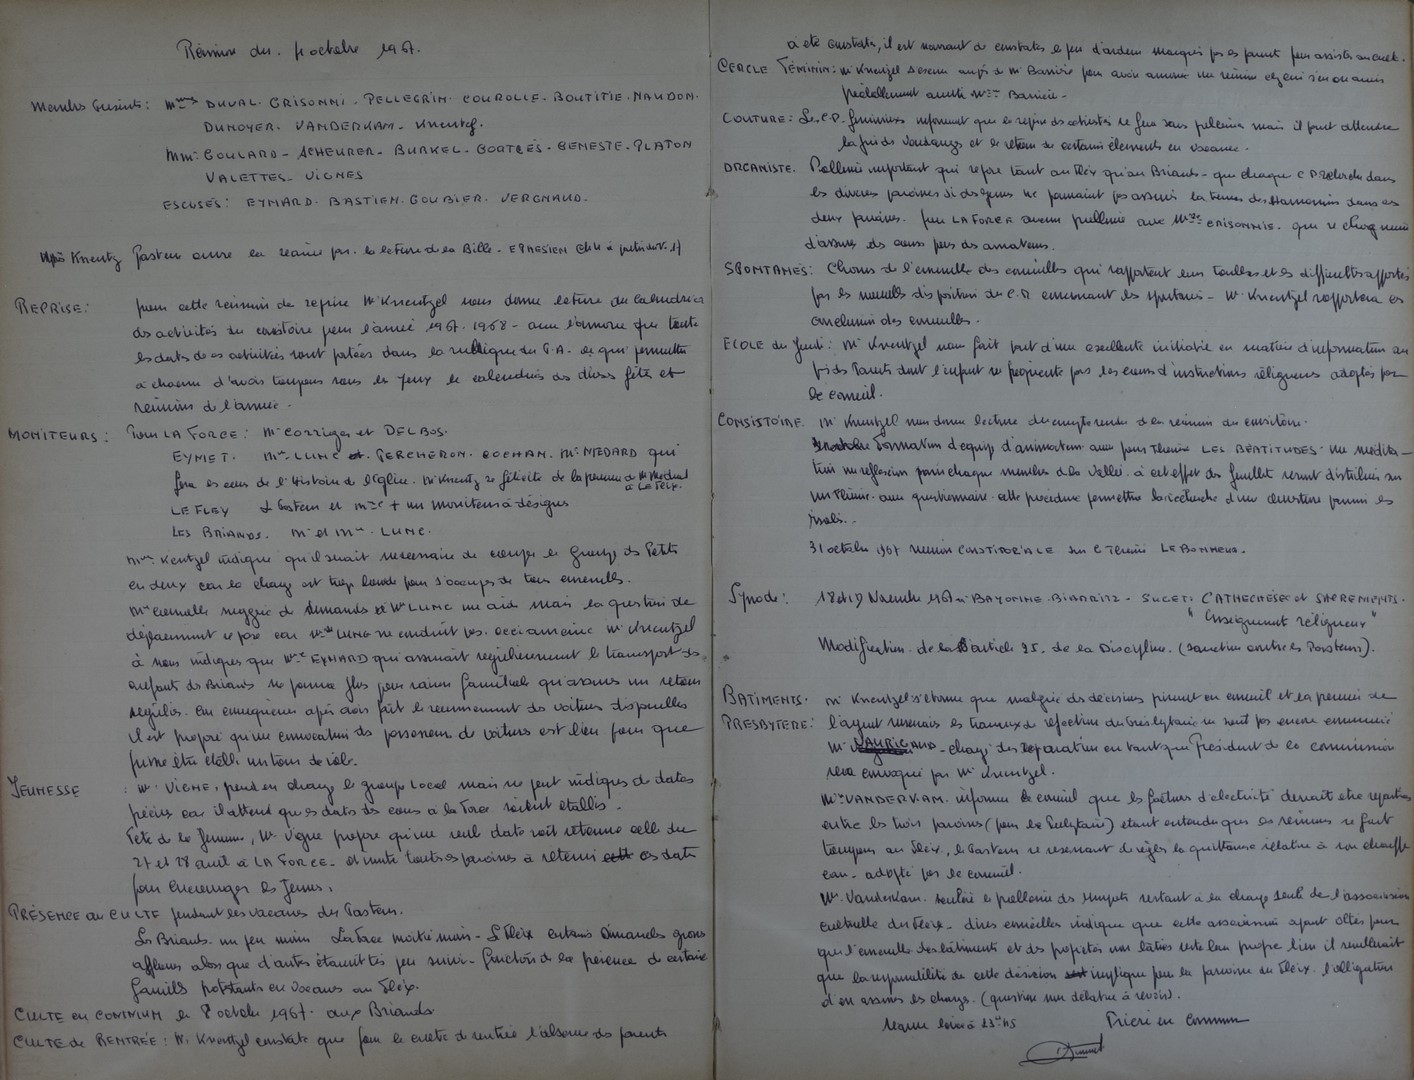 Réunion du 4 octobre 1967.
Membres Présents: Mmes DUVAL. GRISONNI. PELLEGRIN. COUROLLE. BOUTITIE. NAUDON.
DUNOYER. VANDERKAM. Kneutzel.
MM. GOULARD - SCHEURER. BURKEL. GENESTE. PLATON
VALETTES. VIGNES
ESCUSÉS: EYMARD. BASTIEN. GOUBIER. VERGNAUD.
Kneutz Pasteur ouvre la séance par la lecture de la Bible - EPHESIEN Ch 4 à partir du v. 17
REPRISE: pour cette réunion de reprise Mr Kneutzel nous donne lecture du calendrier
des activités du consistoire pour l'année 1967. 1968 - avec l'annonce que toutes
les dates de ces activités sont portées dans la rubrique du P.A. ce qui permettra
à chacun d'avoir toujours sous les yeux le calendrier des divers fêtes et
réunions de l'année.
MONITEURS: Pour LA FORCE: Mr Corriger et DELBOS.
EYMET. Mme LUNC et PERCHERON. COCHAN. Mr MEDARD qui
fera les cours de l'Histoire de l'Eglise. Mr Kneutz se félicite de la présence de Mr Médard
à LE FLEIX.
LE FLEIX Le Pasteur et Mme + un moniteur à désigner
LES BRIANDS. Mr et Mme LUNC.
Mme Kentzel indique qu'il serait nécessaire de couper le groupe des Petits
en deux car la charge est trop lourde pour s'occuper de tous ensemble.
Mme suggère de demander à Mme LUNC une aide mais la question de
déplacement se pose car Mme LUNC ne conduit pas. Ceci amène Mr Kneutzel
à nous indiquer que Mme EYMARD qui assurait régulièrement le transport des
enfants des Briands ne pourra plus pour raison familiale qu'assurer un retour
régulier. En conséquence après avoir fait le recensement des voitures disponibles
il est proposé qu'une convocation des possesseurs de voitures est lieu pour que
puisse être établi un tour de rôle.
JEUNESSE: Mr VIGNE, prend en charge le groupe local mais ne peut indiquer de dates
précises car il attend que les dates des cours à la Force soient établies.
Fête de la Jeunesse, Mr Vigne propose qu'une seule date soit retenue celle du
27 et 28 avril à LA FORCE - et invite toutes les paroisses à retenir ces dates
pour encourager les Jeunes.
PRÉSENCE au CULTE pendant les vacances des Pasteurs.
Les Briands un peu moins La Force moitié moins - Le Fleix certains Dimanches grosse
affluence alors que d'autres étaient très peu suivis - fonction de la présence de certaines
familles protestantes en vacances au Fleix.
CULTE en COMMUN le 8 octobre 1967. aux Briands
CULTE de RENTRÉE: Mr Kneutzel constate que pour le culte de rentrée l'absence des parents
a été constatée, il est navrant de constater le peu d'ardeur marquée par les parents pour assister au culte.
CERCLE FÉMININ: Mr Kneutzel auprès de Mr Barrière pour avoir annoncé une réunion
préalablement averti Mme Barrière.
COUTURE: Les C.P. féminines que la reprise des activités se fera sans problème mais il faut attendre
la fin des Vendanges et le retour de certains éléments en Vacances.
ORGANISTE. Problème important qui se pose tant au Fleix qu'au Briands - que chaque C P recherche dans
les diverses paroisses si des jeunes ne pourraient pas assurer la tenue des Harmoniums dans ces
deux paroisses. Pour LA FORCE aucun problème avec Mme GRISONNIE. qui se charge même
d'assurer des cours pour des amateurs.
SPONTANÉS: Chacun de l'ensemble des conseillers qui rapportent leurs troubles et les difficultés apportées
par les nouvelles dispositions du C.R. concernant les spontanés - Mr Kneutzel rapportera les
conclusions des conseillers.
ECOLE du Jeudi: Mr Kneutzel nous fait part d'une excellente initiative en matière d'information au-
près des Parents dont l'enfant ne fréquente pas les cours d'instructions religieuses adoptée par
le conseil.
CONSISTOIRE. Mr Kneutzel nous donne lecture du compte rendu de la réunion du consistoire.
Formation d'équipe d'animation avec pour Thème LES BÉATITUDES. une médita-
tion une réflexion parmi chaque membre de la Vallée. à cet effet des feuillets seront distribués sur
un Thème. avec questionnaire. cette procédure permettra la recherche d'une ouverture parmi les
isolés.
31 octobre 1967 réunion CONSISTORIALE sur le Thème LE BONHEUR.
Synode: 18 et 19 Novembre BAYONNE. BIARRITZ - SUJET: CATHECHÈSE et SACREMENTS.
" Enseignement religieux "
Modification de l'article 25. de la Discipline. (Sanction contre les Pasteurs).
BATIMENTS. Mr Kneutzel s'étonne que malgré des décisions prises en conseil et la présence de
PRESBYTERE: l'argent nécessaire les travaux de réfection du Presbytère ne sont pas encore commencés
Mr VAURIGAUD - chargé des réparations en tant que Président de la commission
sera convoqué par Mr Kneutzel.
Mr VANDERKAM. informe le conseil que les factures d'électricité devrait être réparties
entre les trois paroisses (pour le Presbytère) étant entendu que les réunions se font
toujours au Fleix, le Pasteur se réservant de régler la quittance relative à son chauffe
eau - adopté par le conseil.
Mr. Vanderkam. soulève le problème des Impôts restant à la charge seule de l'association
cultuelle du Fleix - divers conseillers indique que cette association ayant opter pour
que l'ensemble des bâtiments et des propriétés non bâties reste leur propre bien il semblerait
que la responsabilité de cette décision implique pour la paroisse du Fleix. l'obligation
d'en assurer les charges. (question non débattue à revoir).
Séance levée à 23 H 45 Prière en Commun